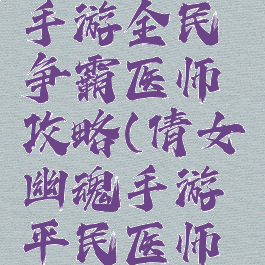 手游全民
争霸医师
攻略(倩女
幽魂手游
平民医师